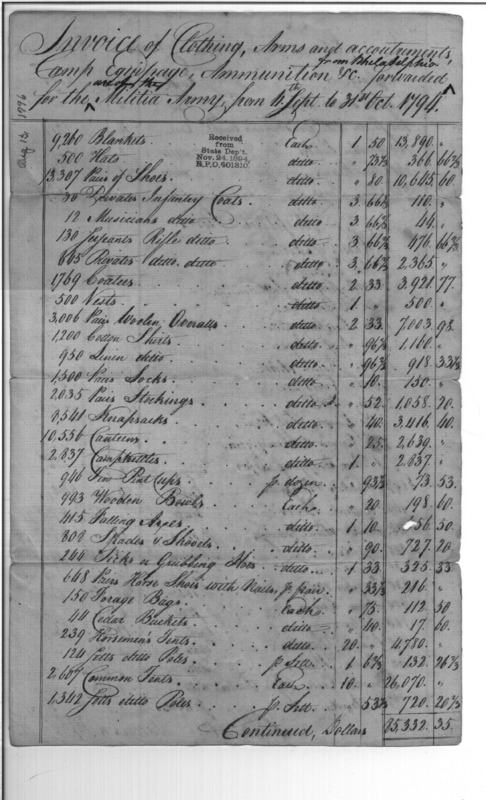 Invoice of Clothing, Arms and accoutrements,
from Philadelphia
Camp Equipage, Ammunition &c. forwarded
for the Militia Army, from 11th Sept. to 31st Oct. 1794.
Aug 13 1796
Received
from
State Dep't.
Nov. 24. 1894.
R.P.O. 401810.
9,260 Blankets. Each 1 50 13,890. "
500 Hats ditto " 73⅓ 366 66⅔
13,307 Pair of Shoes. ditto " 80. 10,645 60.
30 Privates Infantry Coats. ditto 3 66⅔ 110. "
12 Musicians ditto ditto 3 66⅔ 44. "
130 Serjeants Rifle ditto ditto 3 66⅔ 476 66⅔
645 Privates ditto ditto ditto 3. 66⅔ 2,365. "
1769 Coatees ditto 2 33 3,921. 77.
500 Vests ditto 1 " 500. "
3,006 Pair Woolen Overalls ditto 2 33. 7,003. 98.
1,200 Cotton Shirts ditto " 96⅔ 1,160. "
950 Linen ditto ditto " 96⅔ 918 33⅓
1,500 Pair Socks. ditto " 10. 150. "
2,035 Pair Stockings ditto " 52. 1,058. 20.
8,541 Knapsacks ditto " 40. 3,416. 40.
10,556 Canteens ditto " 25. 2,639. "
2,837 Campkettles ditto 1. " 2,837. "
946 Tin Pint Cups p. dozen " 93⅓ 73. 53
993 Wooden Bowls Each " 20 198 60.
415 Falling Axes ditto 1 10 456 50
808 Spades & Shovels ditto " 90. 727. 20
244 Picks or Grubbing Hoes ditto 1 33 325 33
648 Pairs Horse Shoes with Nails, p. pair " 33⅓ 216 "
150 Forage Bags. Each " 75. 112 50
44 Cedar Buckets ditto " 40. 17. 60.
239 Horsemen's Tents. ditto 20. " 4,780. "
124 Setts ditto Poles p. Sett. 1 6⅔ 132. 26⅔
2,607 Common Tents Each 10. " 26,070. "
1,342 Setts ditto Poles p. Sett. " 53⅔ 720. 20⅔
Continued, Dollars 85,332. 35.